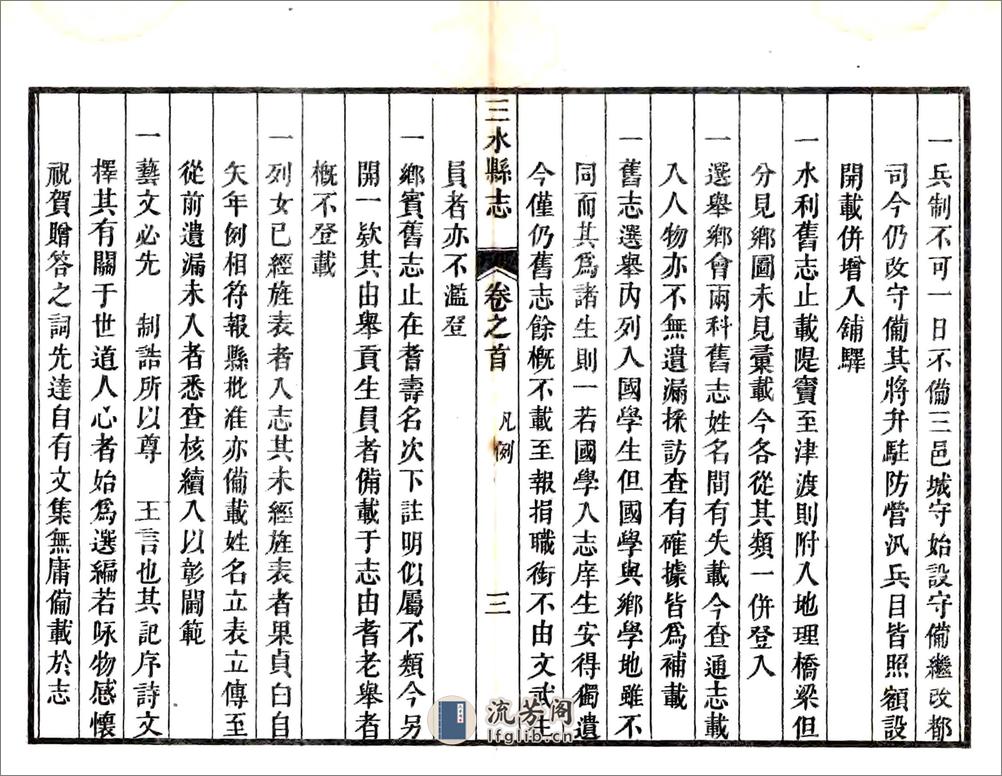 一兵制不可一日不備三邑城守始設守備繼改都
司今仍改守備其將弁駐防營汛兵目皆照額設
開載併增入鋪驛
一水利舊志止載隄竇至津渡則附入地理橋梁但
分見鄉圖未見彙載今各從其類一併登入
一選舉鄉會兩科舊志姓名間有失載今查通志載
入人物亦不無遺漏採訪查有確據皆爲補載
一舊志選舉內列入國學生但國學與鄉學地雖不
同而其爲諸生則一若國學入志庠生安得獨遺
今僅仍舊志餘概不載至報捐職銜不由文武生
員者亦不濫登
三水縣志 卷之首 凡例 三
一鄉賓舊志止在耆壽名次下註明似屬不類今另
開一欵其由舉貢生員者備載于志由耆老舉者
概不登載
一列女已經旌表者入志其未經旌表者果貞白自
矢年例相符報縣批准亦備載姓名立表立傳至
從前遺漏未入者悉查核續入以彰閫範
一藝文必先 制誥所以尊 王言也其記序詩文
擇其有關于世道人心者始爲選編若咏物感懷
祝賀贈答之詞先達自有文集無庸備載於志
流芳阁
lfglib.cn